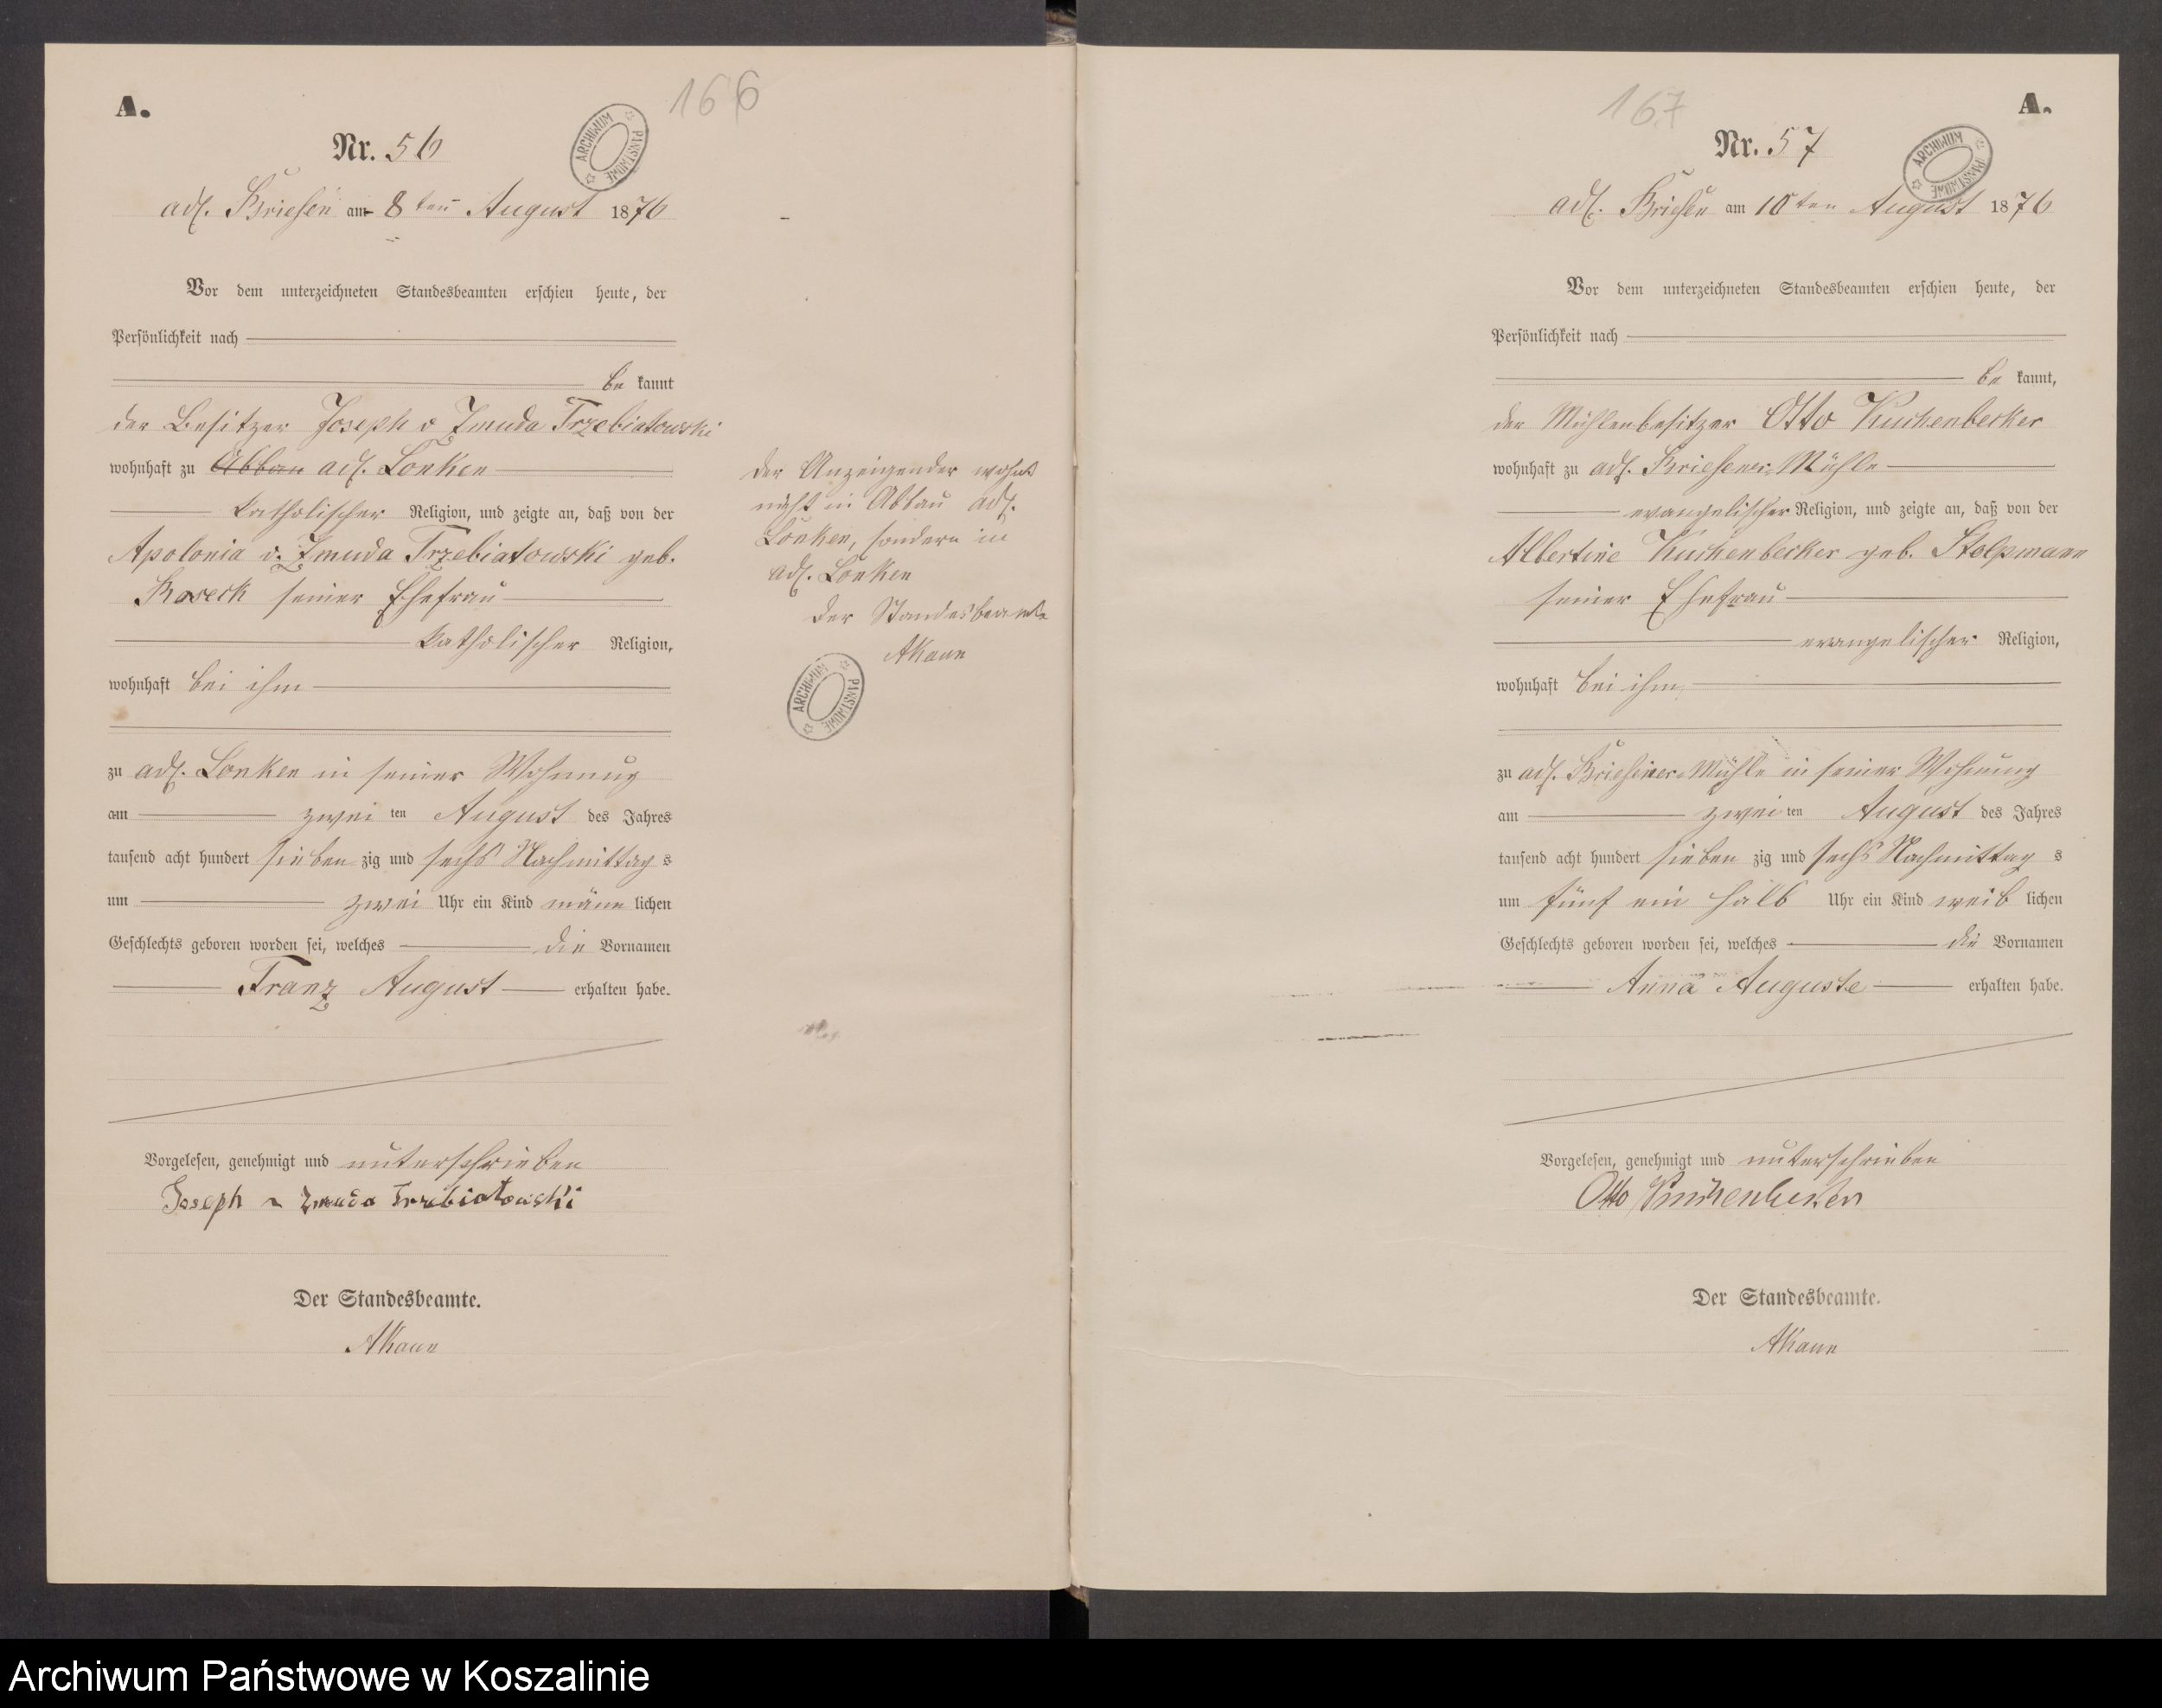 A.
166
Nr. 56
ARCHIWUM PAŃSTWOWE
adl. Briesen am 8 ten August 1876
Vor dem unterzeichneten Standesbeamten erschien heute, der
Persönlichkeit nach
be kannt
der Besitzer Joseph v Zmuda Trzebiatowski
wohnhaft zu Abbau adl. Lonken
katholischer Religion, und zeigte an, daß von der
Apolonia v. Zmuda Trzebiatowski geb.
seiner Ehefrau
katholischer Religion,
wohnhaft bei ihm
zu adl. Lonken in seiner Wohnung
am zwei ten August des Jahres
tausend acht hundert sieben zig und sechs Nachmittag s
um zwei Uhr ein Kind männ lichen
Geschlechts geboren worden sei, welches die Vornamen
Franz August erhalten habe.
Vorgelesen, genehmigt und unterschrieben
Joseph v Zmuda Trzebiatowski
Der Standesbeamte.
AKaun
Der Anzeigender wohnt
nicht in Abbau adl.
Lonken, sondern in
adl. Lonken
Der Standesbeamte
AKaun
ARCHIWUM PAŃSTWOWE
167
A.
Nr. 57
ARCHIWUM PAŃSTWOWE
adl. Briesen am 10 ten August 1876
Vor dem unterzeichneten Standesbeamten erschien heute, der
Persönlichkeit nach
be kannt,
der Mühlenbesitzer Otto Kuchenbecker
wohnhaft zu adl. Briesener-Mühle
evangelischer Religion, und zeigte an, daß von der
Albertine Kuchenbecker geb. Stolpmann
seiner Ehefrau
evangelischer Religion,
wohnhaft bei ihm
zu adl. Briesener-Mühle in seiner Wohnung
am zwei ten August des Jahres
tausend acht hundert sieben zig und sechs Nachmittag s
um fünf ein halb Uhr ein Kind weib lichen
Geschlechts geboren worden sei, welches die Vornamen
Anna Auguste erhalten habe.
Vorgelesen, genehmigt und unterschrieben
Otto Kuchenbecker
Der Standesbeamte.
AKaun
Archiwum Państwowe w Koszalinie